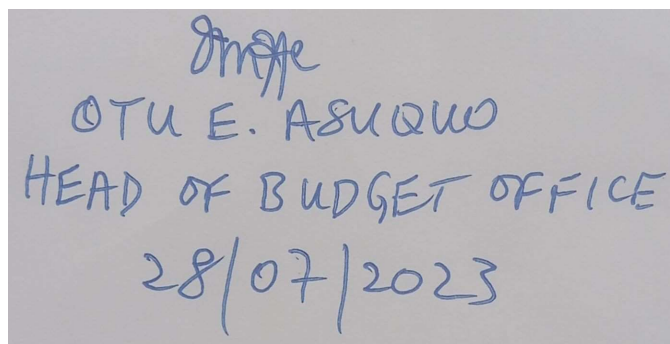 OTU E. ASUQUO
HEAD OF BUDGET OFFICE
28/07/2023